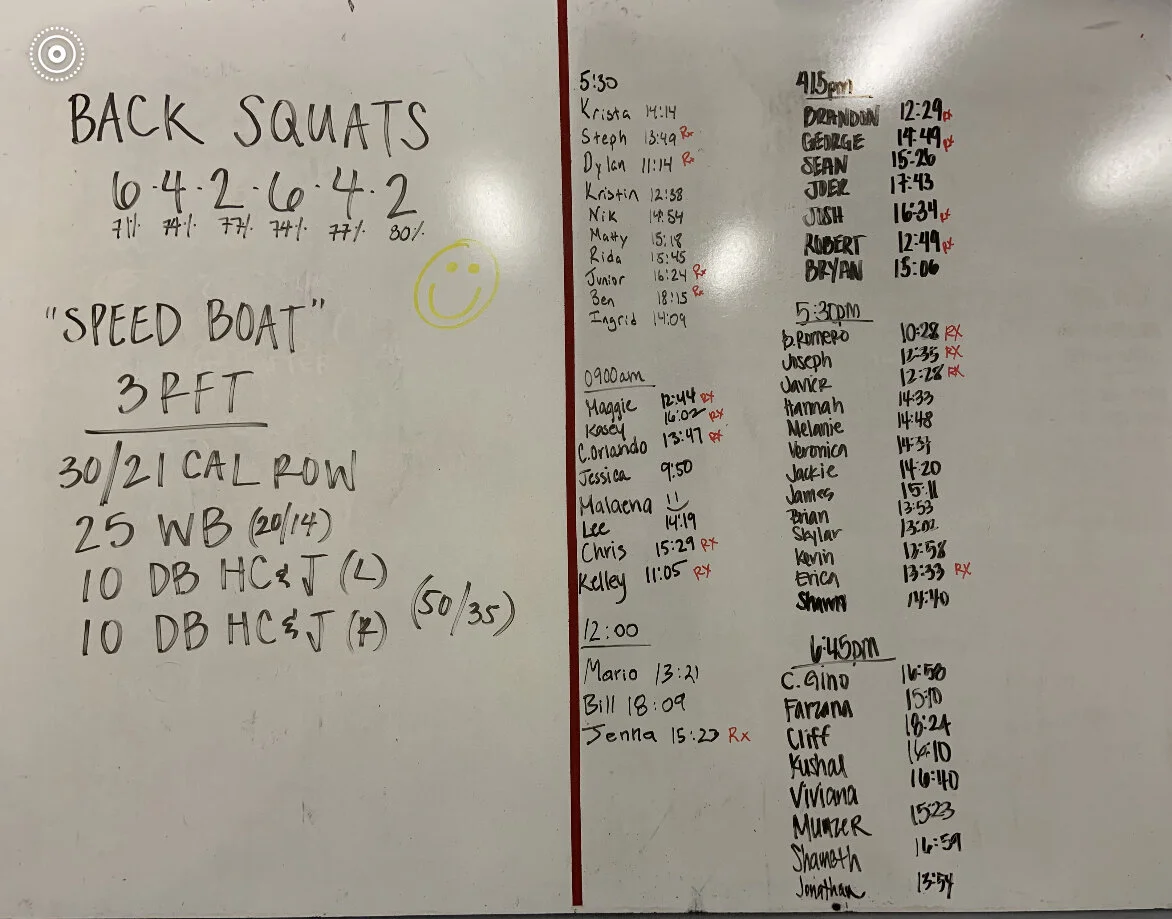 BACK SQUATS
6·4·2·6·4·2
71% 74% 77% 74% 77% 80%
"SPEED BOAT"
3 RFT
30/21 CAL ROW
25 WB (20/14)
10 DB HC&J (L)
10 DB HC&J (R) (50/35)
5:30
Krista 14:14
Steph 13:49 Rx
Dylan 11:14 Rx
Kristin 12:38
Nik 14:54
Matty 15:18
Rida 15:45
Junior 16:24 Rx
Ben 18:15 Rx
Ingrid 14:09
0900am
Maggie 12:44 RX
Kasey 16:02 RX
C.Orlando 13:47 RX
Jessica 9:50
Malaena
Lee 14:19
Chris 15:29 RX
Kelley 11:05 RX
12:00
Mario 13:21
Bill 18:09
Jenna 15:23 Rx
415pm
BRANDON 12:29 RX
GEORGE 14:49 RX
SEAN 15:26
JOER 17:43
JOSH 16:34 RX
ROBERT 12:49 RX
BRYAN 15:06
5:30PM
B.Romero 10:28 RX
Joseph 12:35 RX
Javier 12:28 RX
Hannah 14:33
Melanie 14:48
Veronica
Jackie 14:20
James 15:11
Brian 13:53
Skylar 13:02
Kevin 13:58
Erica 13:33 RX
Shawn 14:40
6:45pm
C.Gino 16:58
Farzana 15:10
Cliff 18:24
Kushal 14:10
Viviana 16:40
Munzer 15:23
Shamoth 16:59
Jonathan 13:54